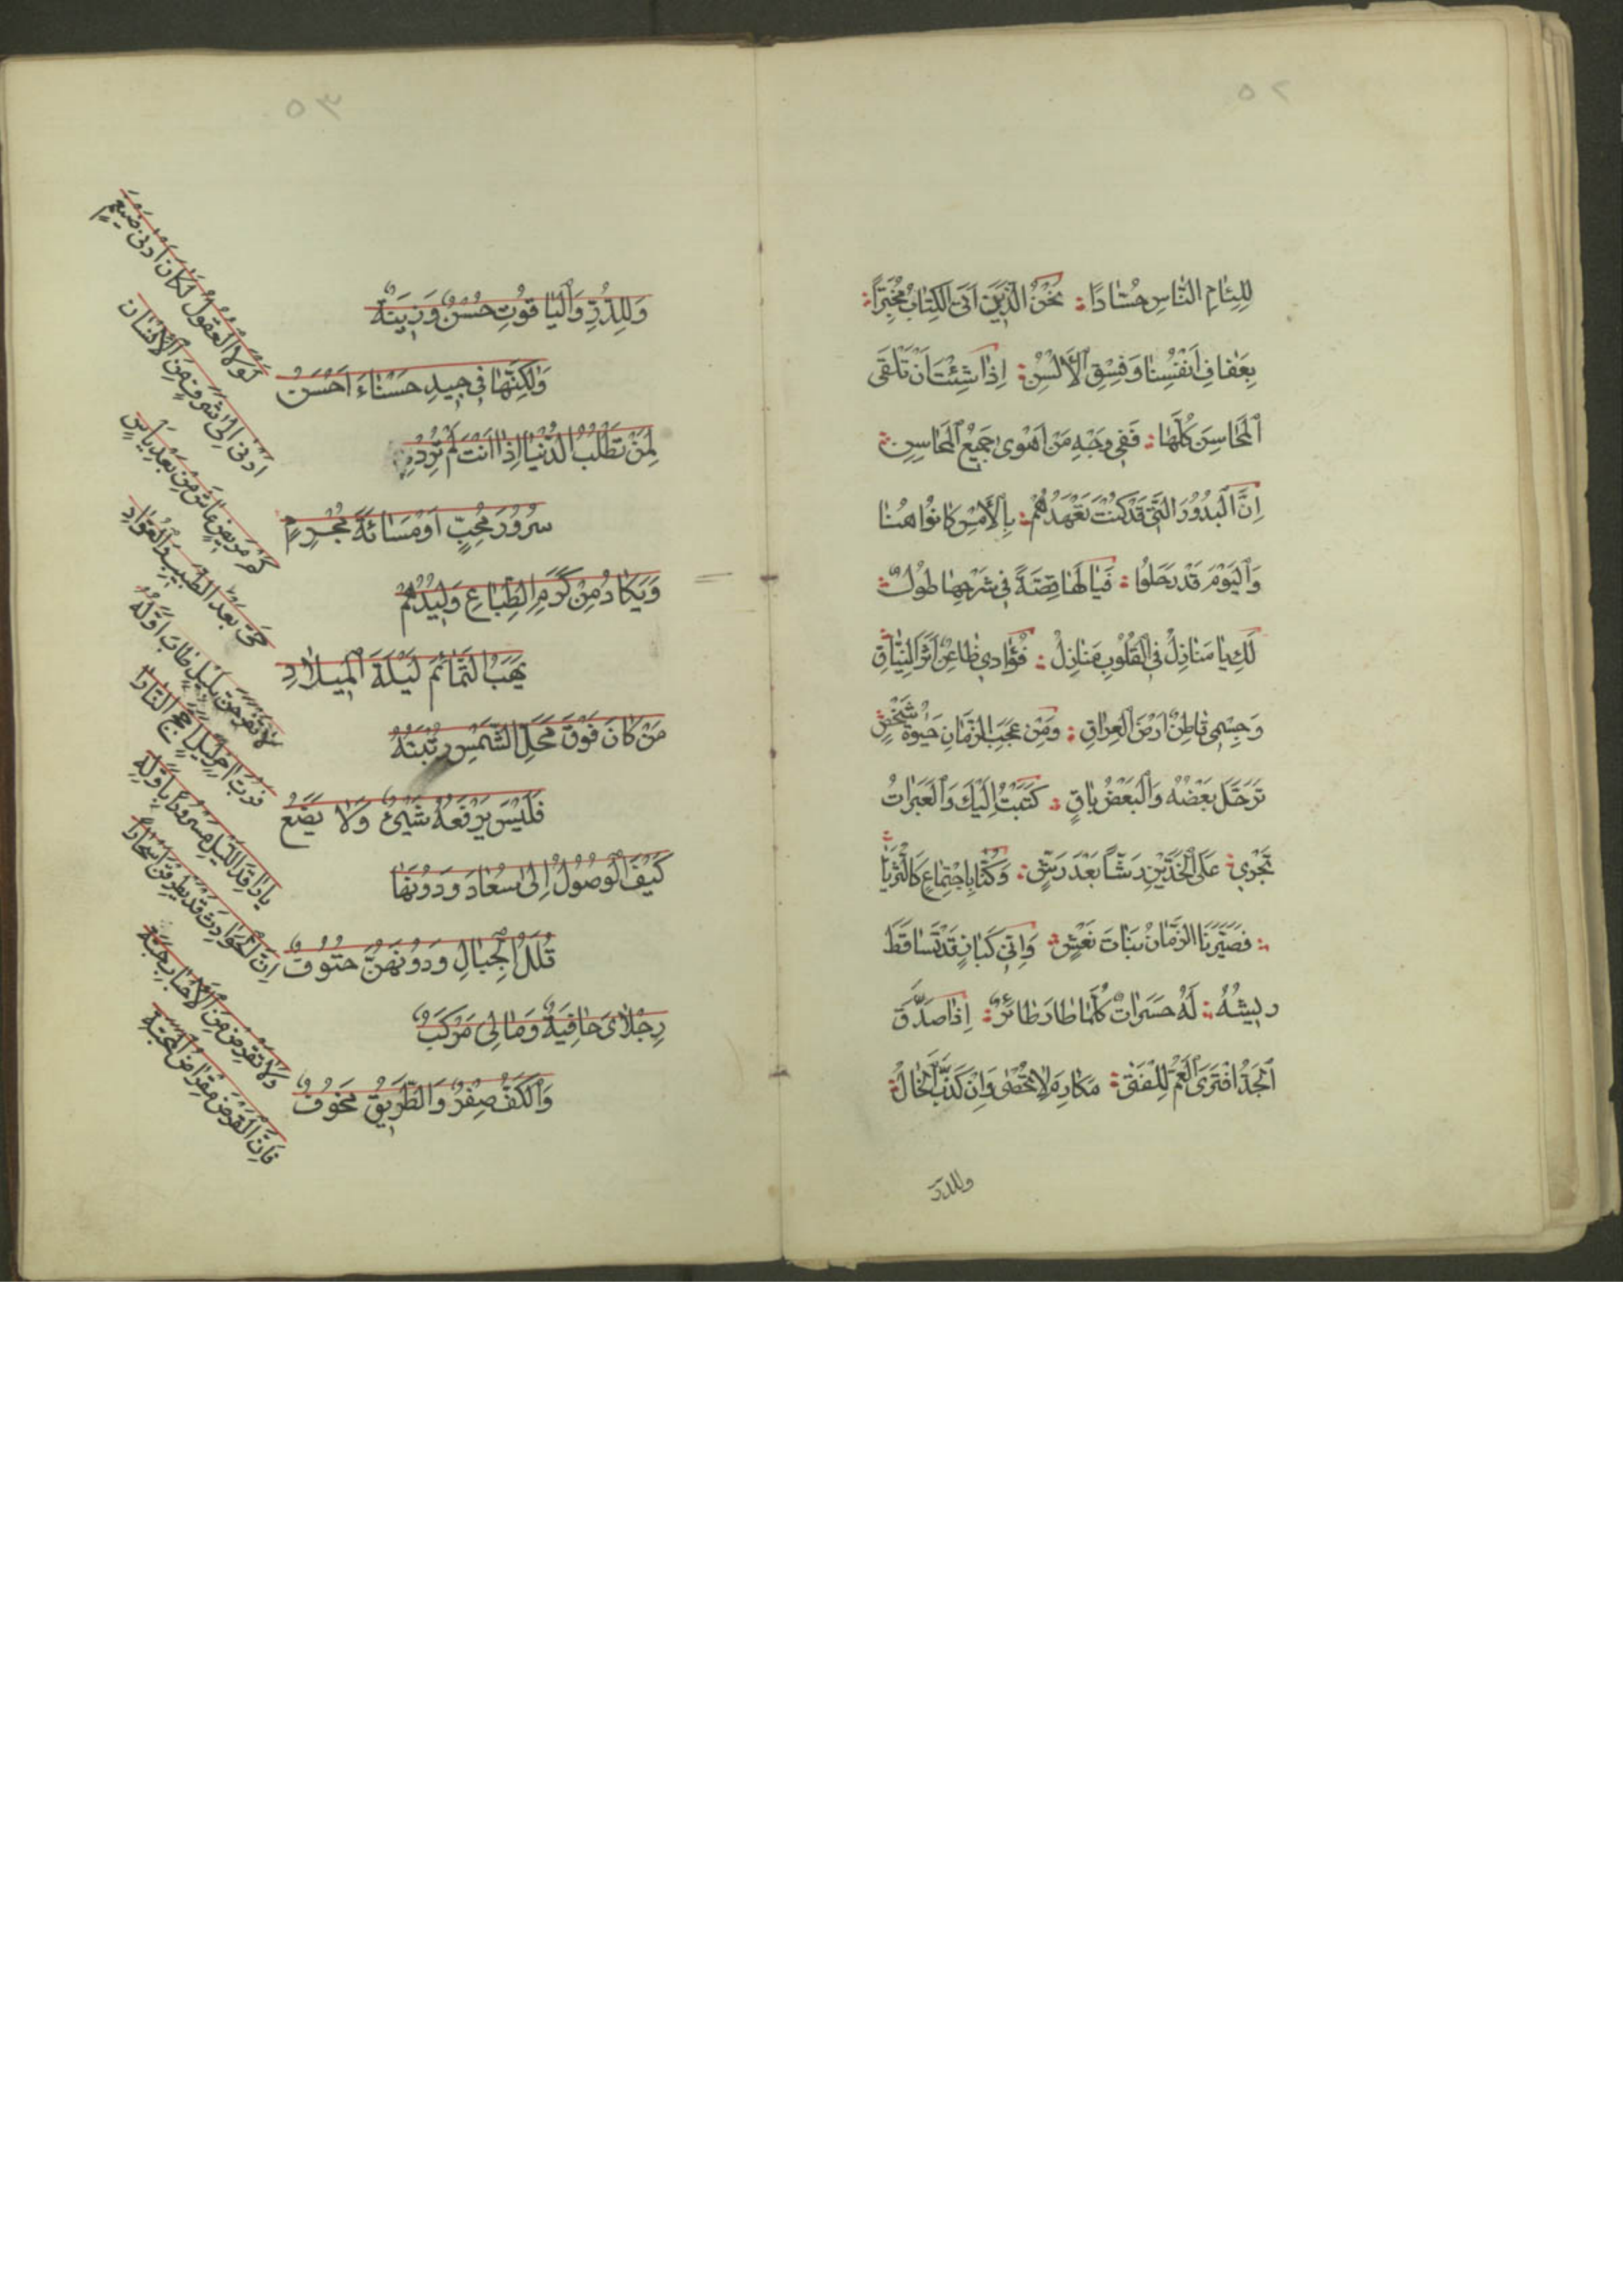 ٥٢
لِلِئَامِ النَّاسِ حُسَّادًا ؛ نَحْنُ الَّذِينَ اَتَى الْكِتَابُ مُخْبِرًا ؛
بِعَفَافِ اَنْفُسِنَا وَفِسْقِ الْاَلْسُنِ ؛ اِذَا شِئْتَ اَنْ تَلْقَى
الْمَحَاسِنَ كُلَّهَا ؛ فَفِي وَجْهِ مَنْ اَهْوَى جَمِيعُ الْمَحَاسِنِ ؛
اِنَّ الْبُدُورَ الَّتِي قَدْ كُنْتَ تَعْهَدُهُمْ ؛ بِالْاَمْسِ كَانُوا هُنَا
وَالْيَوْمَ قَدْ رَحَلُوا ؛ فَيَا لَهَا قِصَّةً فِي شَرْحِهَا طُولٌ ؛
لَكِ يَا مَنَازِلُ فِي الْقُلُوبِ مَنَازِلُ ؛ فُؤَادِي ظَاعِنٌ اَثَرَ النِّيَاقِ ؛
وَجِسْمِي قَاطِنٌ اَرْضَ الْعِرَاقِ ؛ وَمِنْ عَجَبِ الزَّمَانِ حَيٰوةُ شَخْصٍ ؛
تَرَحَّلَ بَعْضُهُ وَالْبَعْضُ بَاقٍ ؛ كَتَبْتُ اِلَيْكَ وَالْعَبَرَاتُ
تَجْرِي ؛ عَلَى الْخَدَّيْنِ رَشًّا بَعْدَ رَشٍّ ؛ وَكُنَّا بِاجْتِمَاعٍ كَالثُّرَيَّا ؛
؛ فَصَيَّرَنَا الزَّمَانُ بَنَاتَ نَعْشٍ ؛ وَاِنِّي كَبَازٍ قَدْ تَسَاقَطَ
رِيشُهُ ؛ لَهُ حَسَرَاتٌ كُلَّمَا طَارَ طَائِرٌ ؛ اِذَا صَدَقَ
الْجَدُّ افْتَرَى الْعَمُّ لِلْفَتَى ؛ مَكَارِمَ لَا تُحْصَى وَاِنْ كَذَبَ الْخَالُ ؛
وللدر
٥٣
وَلِلدُّرِّ وَالْيَاقُوتِ حُسْنٌ وَزِينَةٌ
وَلٰكِنَّهَا فِي جِيدِ حَسْنَاءَ اَحْسَنُ
لِمَنْ تَطْلُبُ الدُّنْيَا اِذَا اَنْتَ لَمْ تُرِدْ
سُرُورَ مُحِبٍّ اَوْ مَسَائَةَ مُجْرِمٍ
وَيَكَادُ مِنْ كَرَمِ الطِّبَاعِ وَلِيدُهُمْ
يَهَبُ التَّمَائِمَ لَيْلَةَ الْمِيلَادِ
مَنْ كَانَ فَوْقَ مَحَلِّ الشَّمْسِ رُتْبَتُهُ
فَلَيْسَ يَرْفَعُهُ شَيْئٌ وَلَا يَضَعُ
كَيْفَ الْوُصُولُ اِلَى سُعَادَ وَدُونَهَا
قُلَلُ الْجِبَالِ وَدُونَهُنَّ حُتُوفٌ
رِجْلَاىَ حَافِيَةٌ وَمَا لِى مَرْكَبٌ
وَالْكَفُّ صِفْرٌ وَالطَّرِيقُ مَخُوفٌ
لَوْلَا الْعُقُولُ لَكَانَ اَدْنَى ضَيْغَمٍ
اَدْنَى اِلَى شَرَفٍ مِنَ الْاِنْسَانِ
كَمْ مَرِيضٍ عَاشَ مِنْ بَعْدِ يَاْسٍ
بَعْدَ الطَّبِيبِ وَالْعُوَّادِ
لَا تَفْرَحَنَّ بِلَيْلٍ طَابَ اَوَّلُهُ
فَرُبَّ اٰخِرِ لَيْلٍ اَجَّجَ النَّارَا
يَا رَاقِدَ اللَّيْلِ مَسْرُورًا بِاَوَّلِهِ
اِنَّ الْحَوَادِثَ قَدْ يَطْرُقْنَ اَسْحَارًا
وَلَا تَقْرِضْ مِنَ الْاَحْبَابِ حَبَّةً
فَاِنَّ الْقَرْضَ مِقْرَاضُ الْمَحَبَّةِ